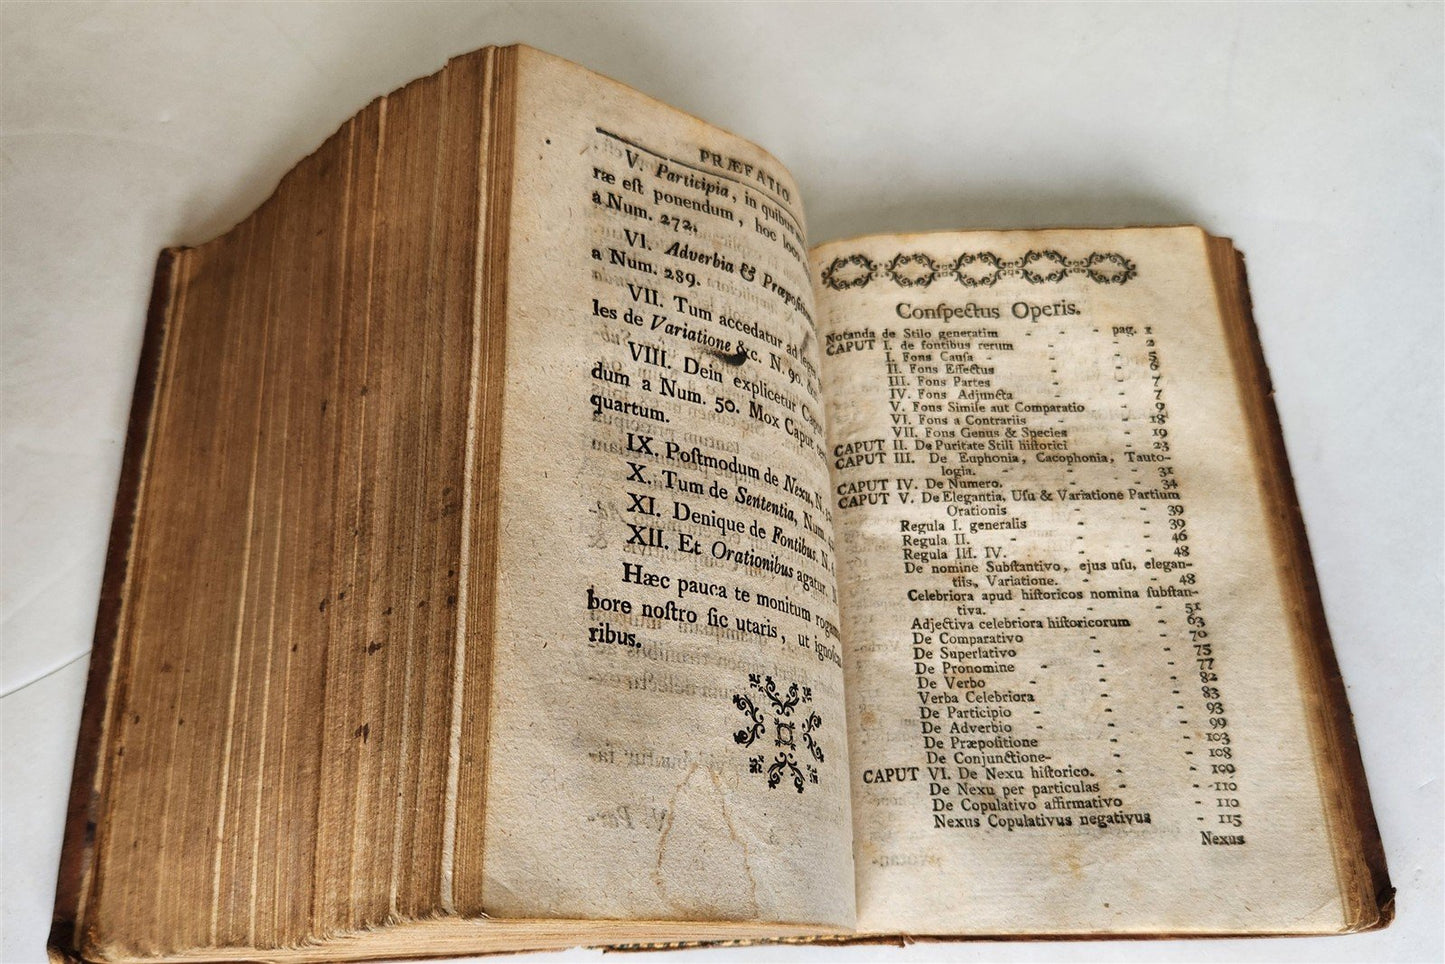 PRÆFATIO.
V. Participia, in quibus
ræ eſt ponendum, hoc loco
a Num. 272.
VI. Adverbia & Præpoſition
a Num. 289.
VII. Tum accedatur ad
les de Variatione &c. N. 90.
VIII. Dein explicetur
dum a Num. 50. Mox Caput
quartum.
IX. Poſtmodum de Nexu, N.
X. Tum de Sententia, Num.
XI. Denique de Fontibus. N.
XII. Et Orationibus agatur.
Hæc pauca te monitum
bore noſtro ſic utaris, ut
ribus.
Conſpectus Operis.
Notanda de Stilo generatim - - - pag. 1
CAPUT I. de fontibus rerum - - 2
I. Fons Cauſa - - - 5
II. Fons Effectus - - 6
III. Fons Partes - - 7
IV. Fons Adjuncta - - 7
V. Fons Simile aut Comparatio - 9
VI. Fons a Contrariis - - 18
VII. Fons Genus & Species - 19
CAPUT II. De Puritate Stili hiſtorici - 23
CAPUT III. De Euphonia, Cacophonia, Tauto-
logia. - - - 31
CAPUT IV. De Numero. - - - 34
CAPUT V. De Elegantia, Uſu & Variatione Partium
Orationis - - 39
Regula I. generalis - - 39
Regula II. - - - 46
Regula III. IV. - - - 48
De nomine Subſtantivo, ejus uſu, elegan-
tiis, Variatione. - - - 48
Celebriora apud hiſtoricos nomina ſubſtan-
tiva. - - - - 51
Adjectiva celebriora hiſtoricorum - 63
De Comparativo - - 70
De Superlativo - - 75
De Pronomine - - - 77
De Verbo - - - 82
Verba Celebriora - - 83
De Participio - - - 93
De Adverbio - - - 99
De Præpoſitione - - 103
De Conjunctione- - - 108
CAPUT VI. De Nexu hiſtorico. - - 109
De Nexu per particulas - - -110
De Copulativo affirmativo - 110
Nexus Copulativus negativus - 115
Nexus